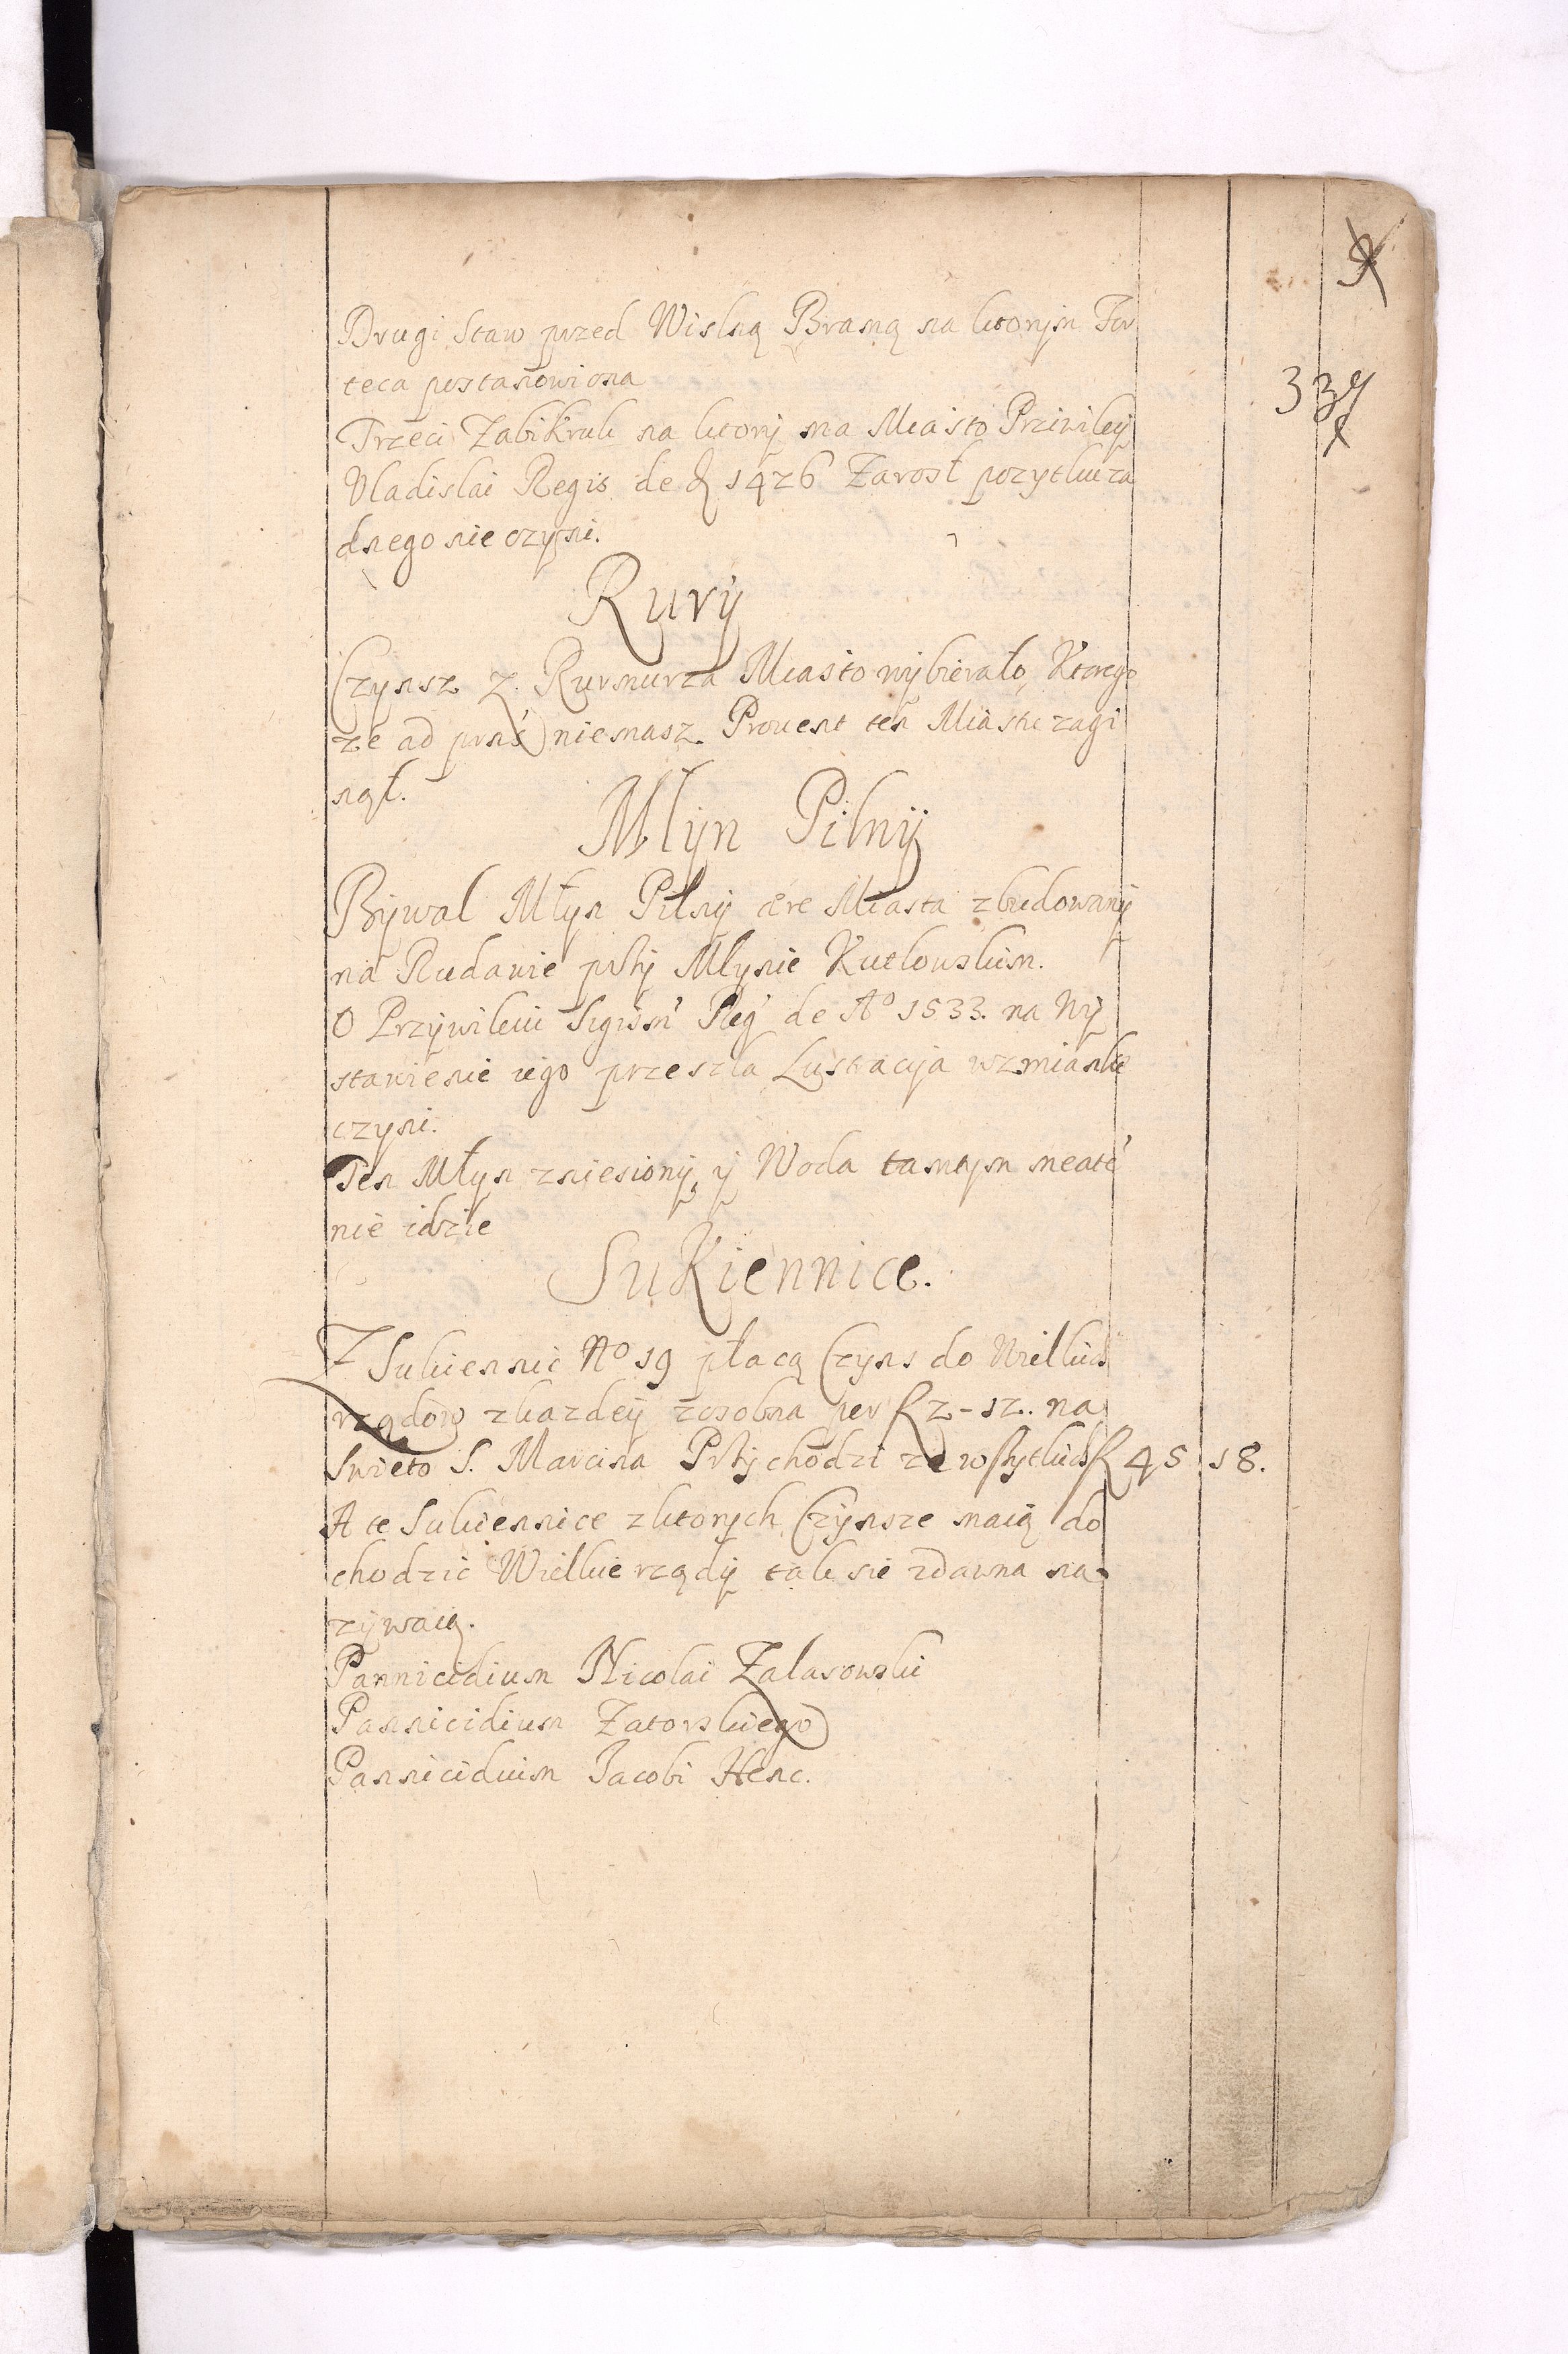 Drugi Staw przed Wislną Bramą na ktorym For
teca postanowiona
Trzeci Zabikruk na ktory ma Miasto Priwiley
Vladislai Regis de A 1426 Zarosł pozytku za
dnego nie czyni.
Rury
Czynsz z Rurmurza Miasto wybierało, Ktorego
ze ad prns niemasz Prouent ten Miastu zagi
nął.
Młyn Pilny
Bywal Młyn Pilny ære Miasta zbudowany
na Rudawie przy Mlynie Kutlowskim.
O Przywileiu Sigism Reg de Aº 1533. na Wy
stawienie iego przeszla Lustracyja wzmianke
czyni.
Ten Młyn zniesiony, y Woda tamtym meatē
nie idzie
Sukiennice.
Z Sukiennic Nº 19 płacą Czyns do Wielkich
rządow zkazdey zosobna per f 2 - 12. na
Swieto S. Marcina Przychodzi ze wszytkich f 45 18.
A te Sukiennice zktorych Czynsze maią do
chodzic Wielkie rządy tak sie zdawna na
zywaią.
Pannicidium Nicolai Zalasowski
Pannicidium Zatorskiego
Pannicidium Jacobi Henc.